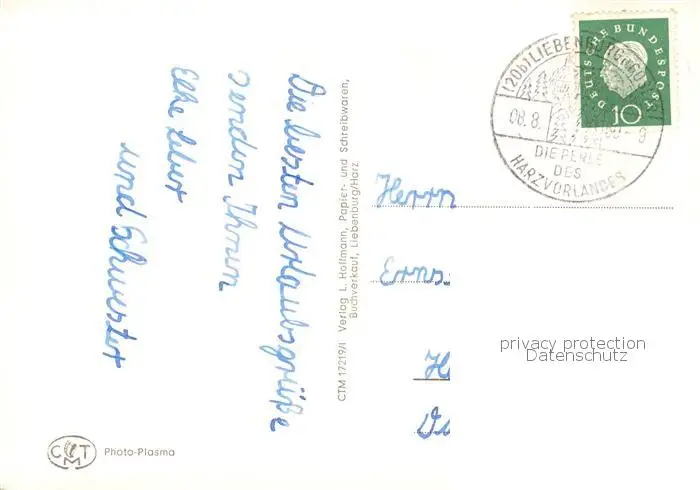 Die besten Urlaubsgrüße
senden Ihnen
Elke Lebur
und Schwester
CTM 17219/I Verlag L. Hoffmann, Papier- und Schreibwaren,
Buchverkauf, Liebenburg/Harz
(20b) LIEBENBURG
08.8.
-9
DIE PERLE
DES
HARZVORLANDES
DEUTSCHE BUNDESPOST
10
Herrn
Erns
H
privacy protection
Datenschutz
CTM
Photo-Plasma